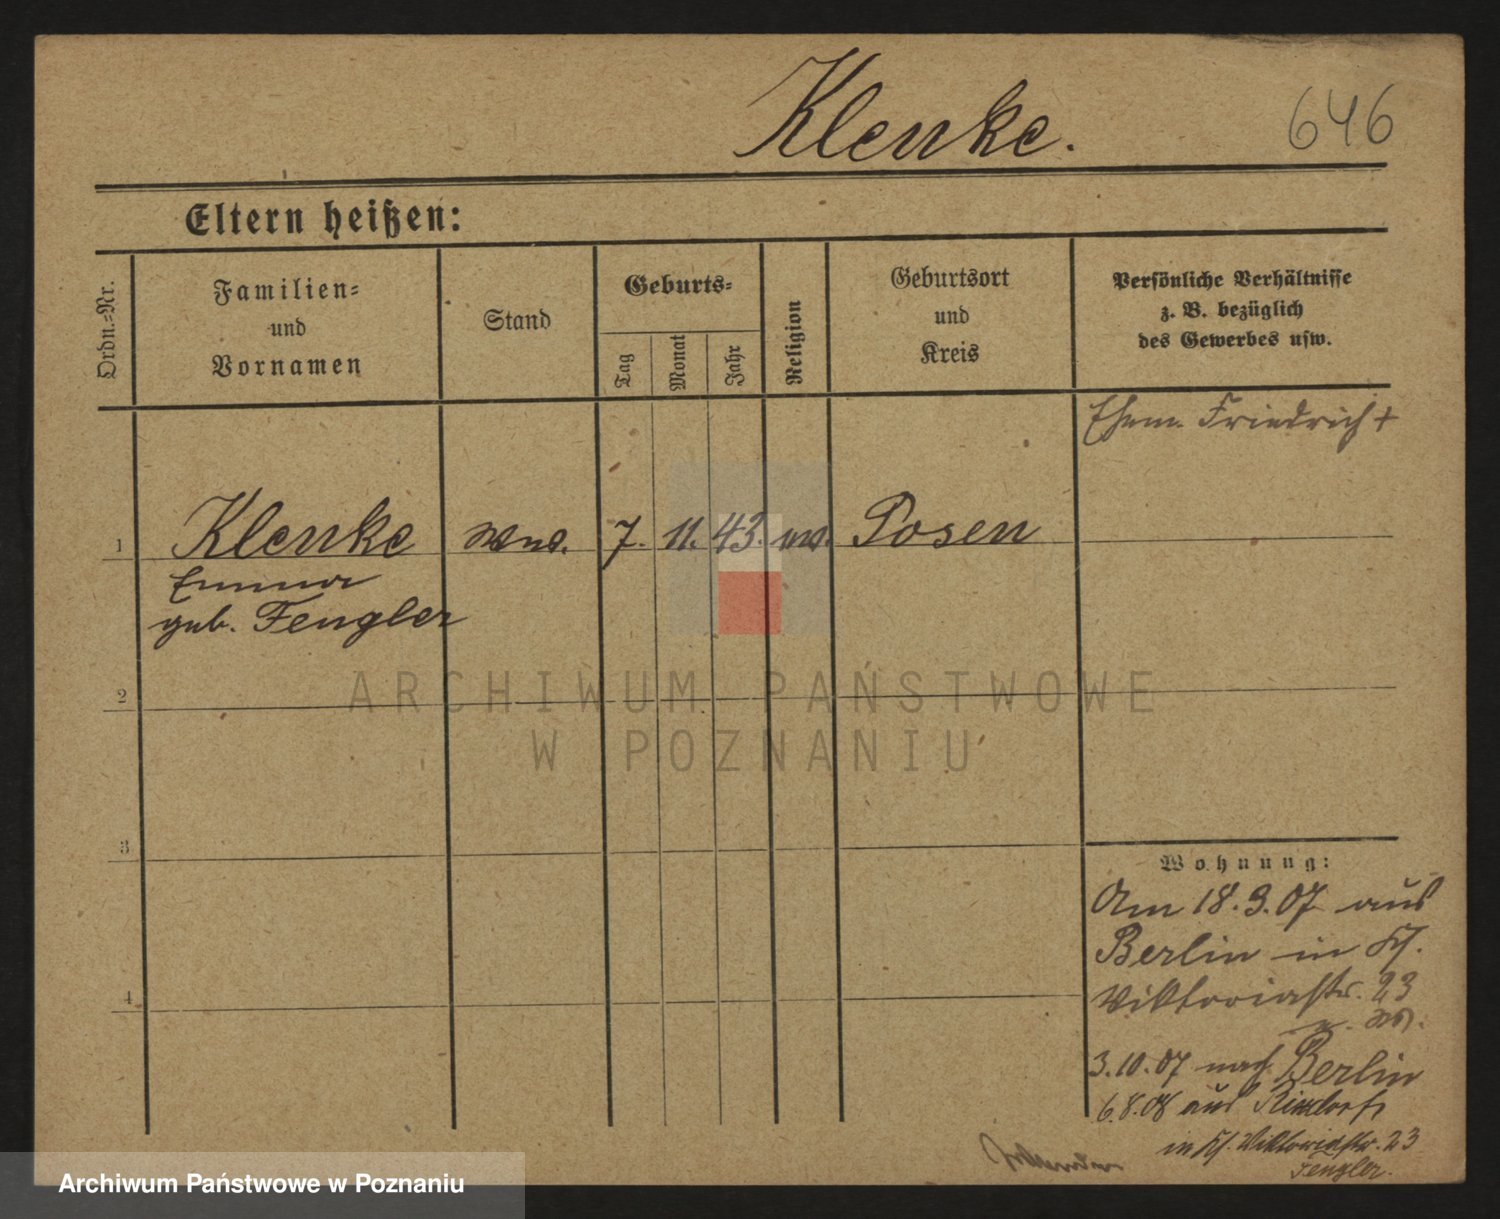 Klenke.
646
Eltern heißen:
Ordn.-Nr.
Familien-
und
Vornamen
Stand
Geburts-
Tag
Monat
Jahr
Religion
Geburtsort
und
Kreis
Persönliche Verhältnisse
z. B. bezüglich
des Gewerbes usw.
Ehem. Friedrich +
1 Klenke Wwe. 7. 11. 43. ev. Posen
Emma
geb. Fengler
2
ARCHIWUM PAŃSTWOWE
W POZNANIU
3
4
Wohnung:
Am 18.9.07 aus
Berlin in
Viktoriastr. 23
3.10.07 nach Berlin
6.8.08 aus Rixdorf
in Viktoriastr. 23
Fengler.
Archiwum Państwowe w Poznaniu